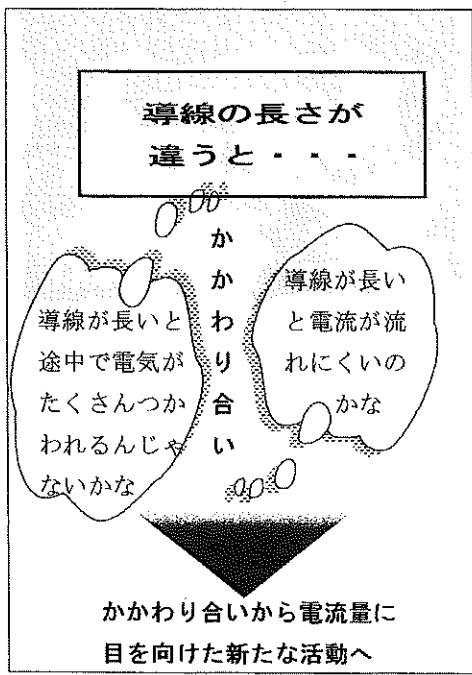 導線の長さが
違うと・・・
かかわり合い
導線が長いと
途中で電気が
たくさんつか
われるんじゃ
ないかな
導線が長い
と電流が流
れにくいの
かな
かかわり合いから電流量に
目を向けた新たな活動へ